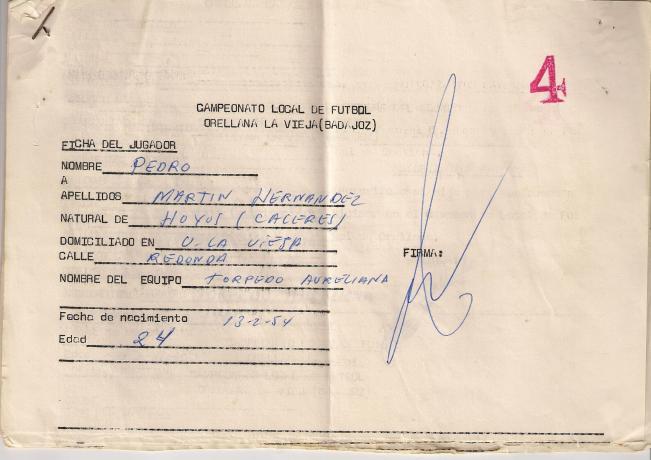 4
CAMPEONATO LOCAL DE FUTBOL
ORELLANA LA VIEJA(BADAJOZ)
FICHA DEL JUGADOR
NOMBRE PEDRO
A
APELLIDOS MARTIN HERNANDEZ
NATURAL DE HOYOS (CACERES)
DOMICILIADO EN O. LA VIEJA
CALLE REDONDA
FIRMA:
NOMBRE DEL EQUIPO TORPEDO AURELIANA
Fecha de nacimiento 13-2-54
Edad 24